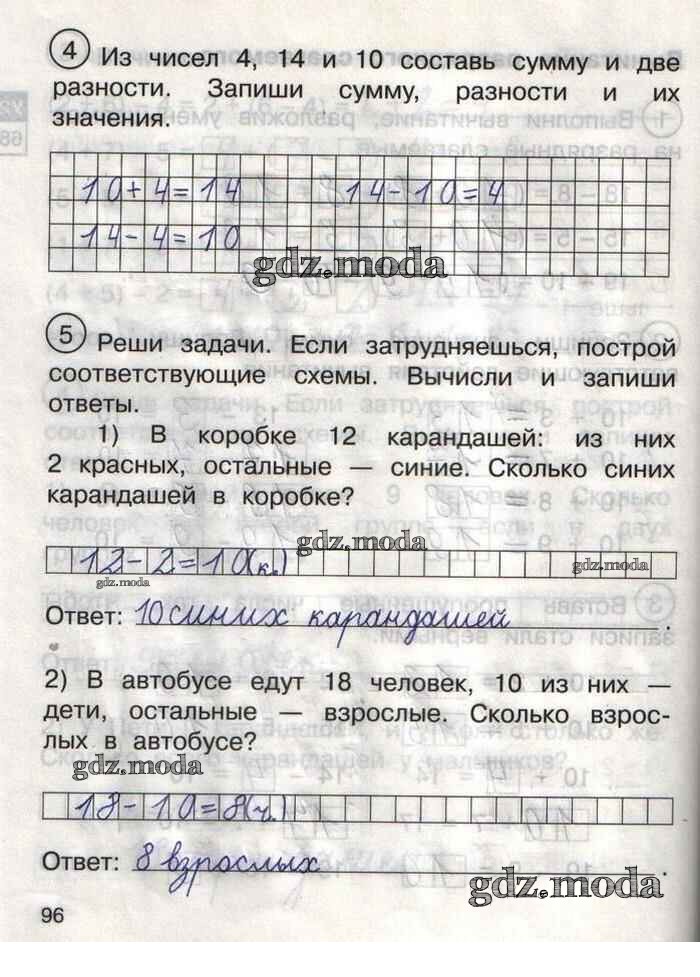 4 Из чисел 4, 14 и 10 составь сумму и две
разности. Запиши сумму, разности и их
значения.
10+4=14 14-10=4
14-4=10
gdz.moda
5 Реши задачи. Если затрудняешься, построй
соответствующие схемы. Вычисли и запиши
ответы.
1) В коробке 12 карандашей: из них
2 красных, остальные — синие. Сколько синих
карандашей в коробке?
gdz.moda
12-2=10(к.)
gdz.moda
gdz.moda
Ответ: 10 синих карандашей.
2) В автобусе едут 18 человек, 10 из них —
дети, остальные — взрослые. Сколько взрос-
лых в автобусе?
gdz.moda
18-10=8(ч.)
Ответ: 8 взрослых.
gdz.moda
96